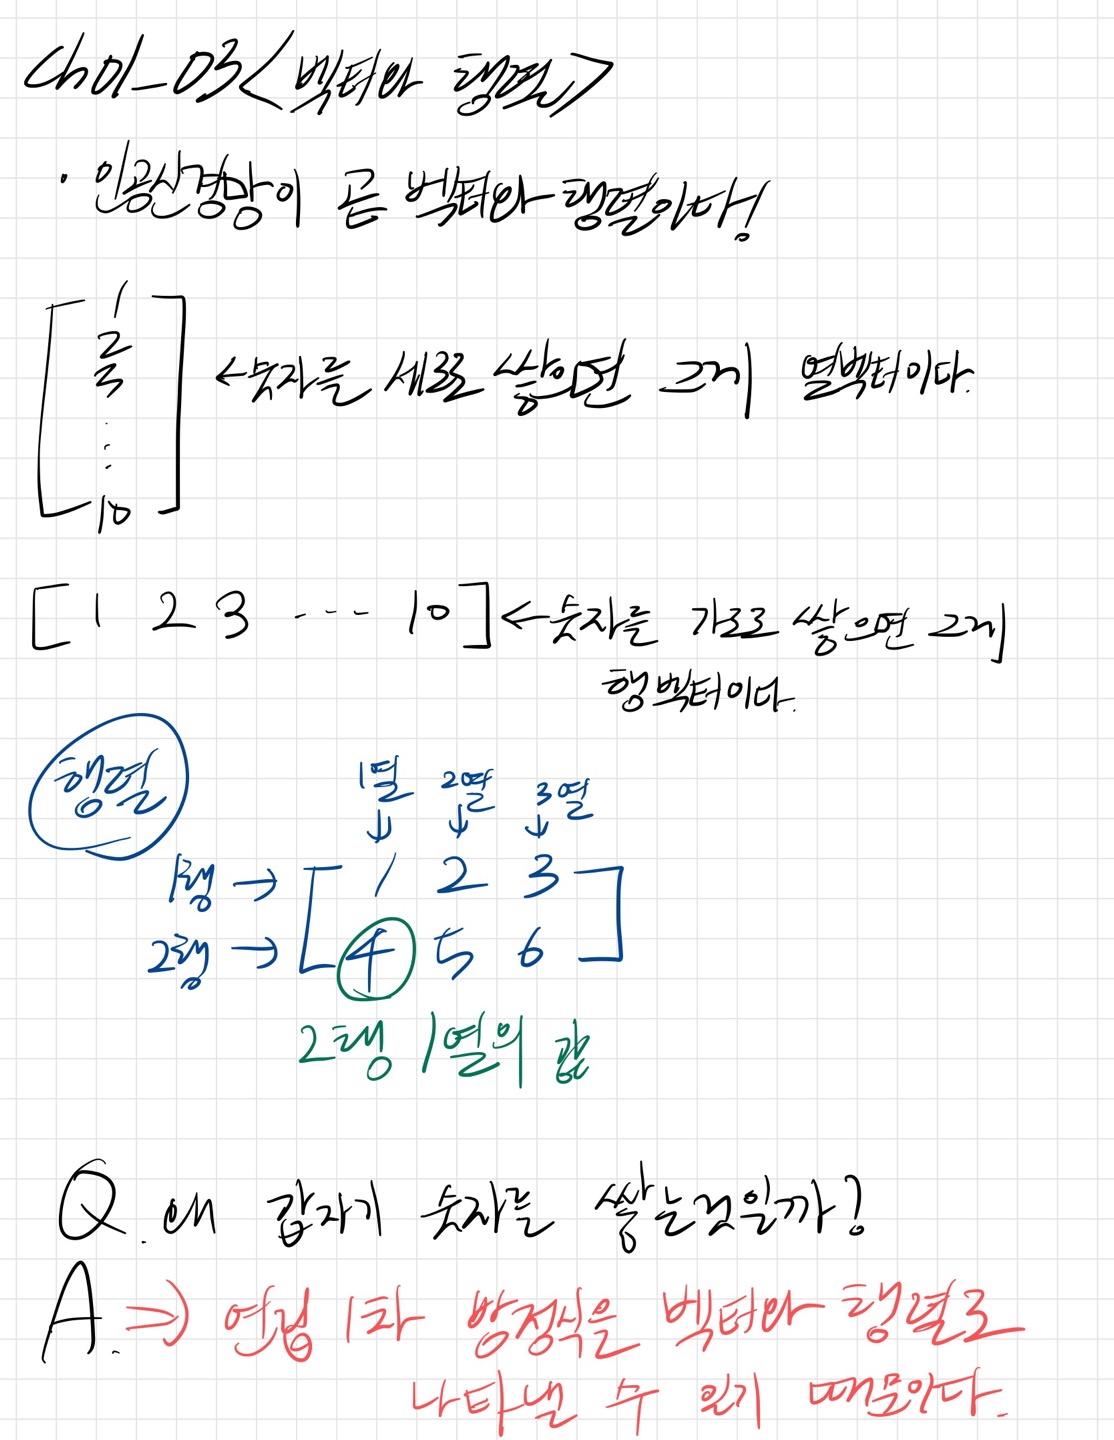 Ch01_03<벡터와 행렬>
· 인공신경망이 곧 벡터와 행렬이다!
1
2
3
⋮
10
←숫자를 세로로 쌓으면 그게 열벡터이다.
[1 2 3 ... 10] ←숫자를 가로로 쌓으면 그게
행벡터이다.
행렬
1열 2열 3열
↓ ↓ ↓
1행 → [1 2 3]
2행 → [4 5 6]
2행 1열의 값
Q. 왜 갑자기 숫자를 쌓는것일까?
A. ⇒ 연립 1차 방정식을 벡터와 행렬로
나타낼 수 있기 때문이다.